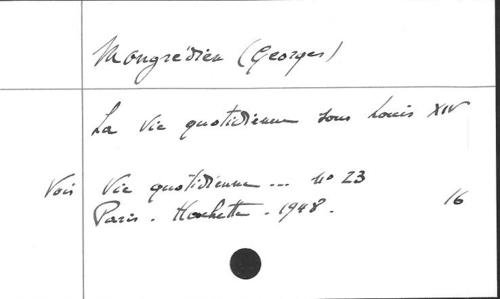 Mongrédien (Georges)
La Vie quotidienne sous Louis XIV
Voir Vie quotidienne ... no 23
Paris. Hachette. 1948. 16